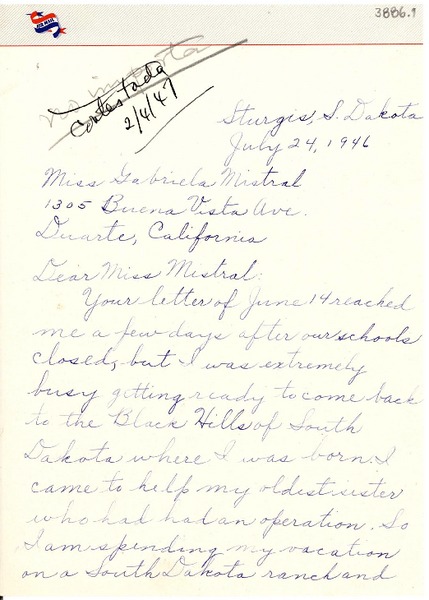 3886.1
AIR MAIL
no importa
Contestada
2/4/47
Sturgis, S. Dakota
July 24, 1946
Miss Gabriela Mistral
1305 Buena Vista Ave.
Duarte, California
Dear Miss Mistral:
Your letter of June 14 reached
me a few days after our schools
closed, but I was extremely
busy getting ready to come back
to the Black Hills of South
Dakota where I was born. I
came to help my oldest sister
who had had an operation. So
I am spending my vacation
on a South Dakota ranch and